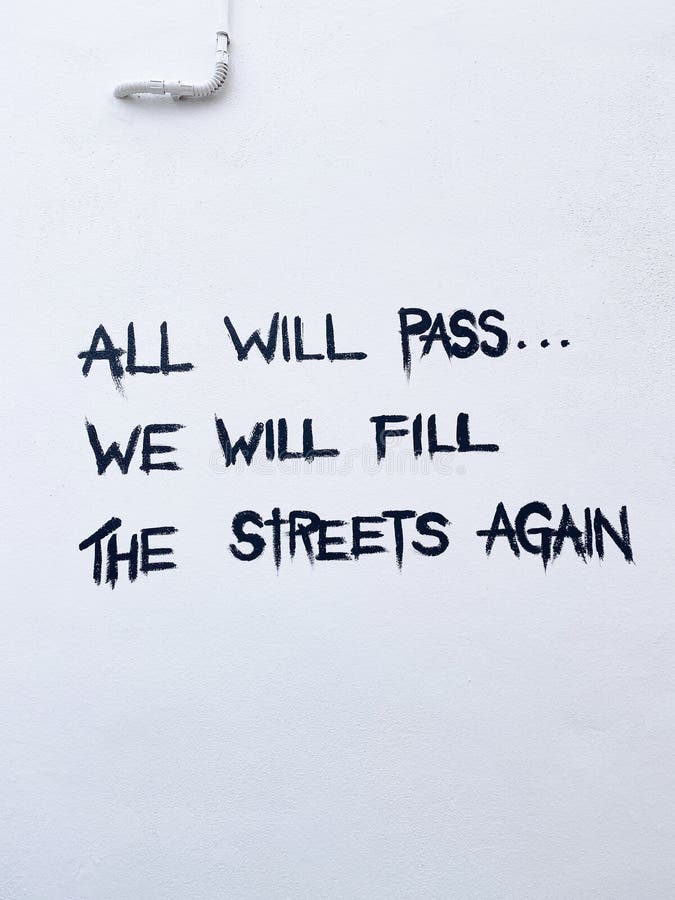 ALL WILL PASS...
WE WILL FILL
THE STREETS AGAIN